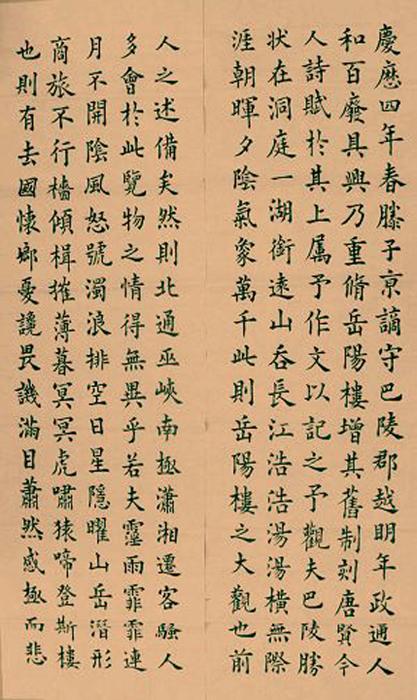 慶厯四年春滕子亰謫守巴陵郡越明年政通人
和百廢具興乃重脩岳陽樓增其舊制刻唐賢今
人詩賦於其上属予作文以記之予觀夫巴陵勝
状在洞庭一湖銜遠山吞長江浩浩湯湯橫無際
涯朝暉夕陰氣象萬千此則岳陽樓之大觀也前
人之述備矣然則北通巫峽南極瀟湘遷客騷人
多會於此覽物之情得無異乎若夫霪雨霏霏連
月不開陰風怒號濁浪排空日星隱曜山岳潛形
商旅不行檣傾楫摧薄暮冥冥虎嘯猿啼登斯樓
也則有去國懷鄉憂讒畏譏滿目蕭然感極而悲